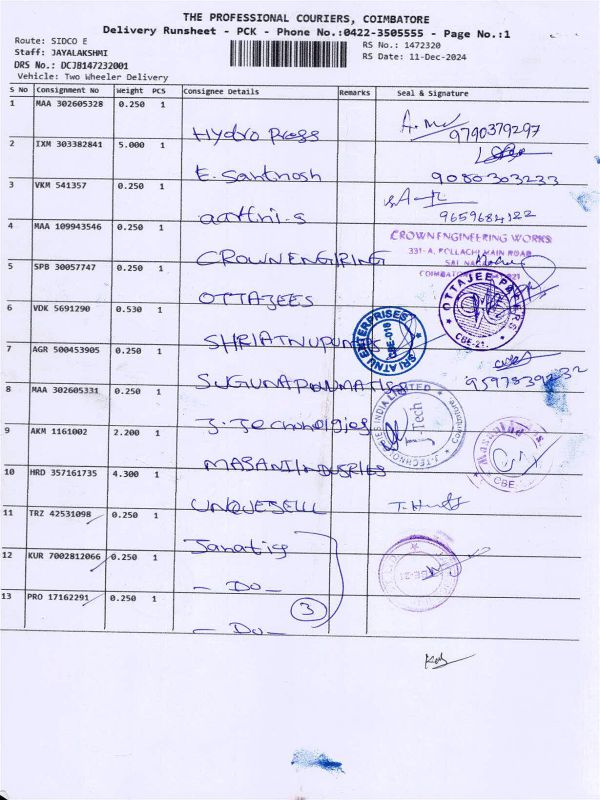 THE PROFESSIONAL COURIERS, COIMBATORE
Delivery Runsheet - PCK - Phone No.:0422-3505555 - Page No.:1
Route: SIDCO E
RS No.: 1472320
Staff: JAYALAKSHMI
RS Date: 11-Dec-2024
DRS No.: DCJB147232001
Vehicle: Two Wheeler Delivery
S No Consignment No Weight PCS Consignee Details Remarks Seal & Signature
1 MAA 302605328 0.250 1 Hydro Press 9790379297
2 IXM 303382841 5.000 1 E. Santhosh 9080303233
3 VKM 541357 0.250 1 aarthi.s 9659684122
4 MAA 109943546 0.250 1 CROWN ENGIRING
CROWN ENGINEERING WORKS
331-A, POLLACHI MAIN ROAD
5 SPB 30057747 0.250 1 OTTAJEES
OTTAJEE PAPERS
CBE-21.
6 VDK 5691290 0.530 1
SRI ATNU ENTERPRISES
CBE-018
7 AGR 500453905 0.250 1 9597839232
8 MAA 302605331 0.250 1 J-Technologies
J-TECHNOLOGIES INDIA LIMITED
Coimbatore
J Tech
9 AKM 1161002 2.200 1 MASANI INDUSRIES
CBE
10 HRD 357161735 4.300 1
11 TRZ 42531098 0.250 1
12 KUR 7002812066 0.250 1 - Do -
13 PRO 17162291 0.250 1 - Do -
3